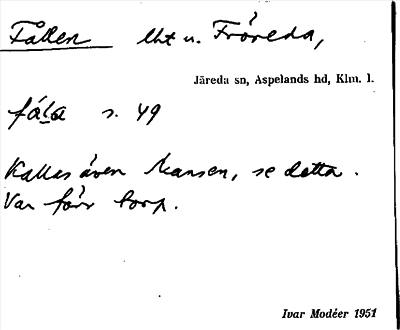 Fallen lht u. Fröreda,
Järeda sn, Aspelands hd, Klm. l.
fála s. 49
Kallas även Mansen, se detta.
Var förr torp.
Ivar Modéer 1951